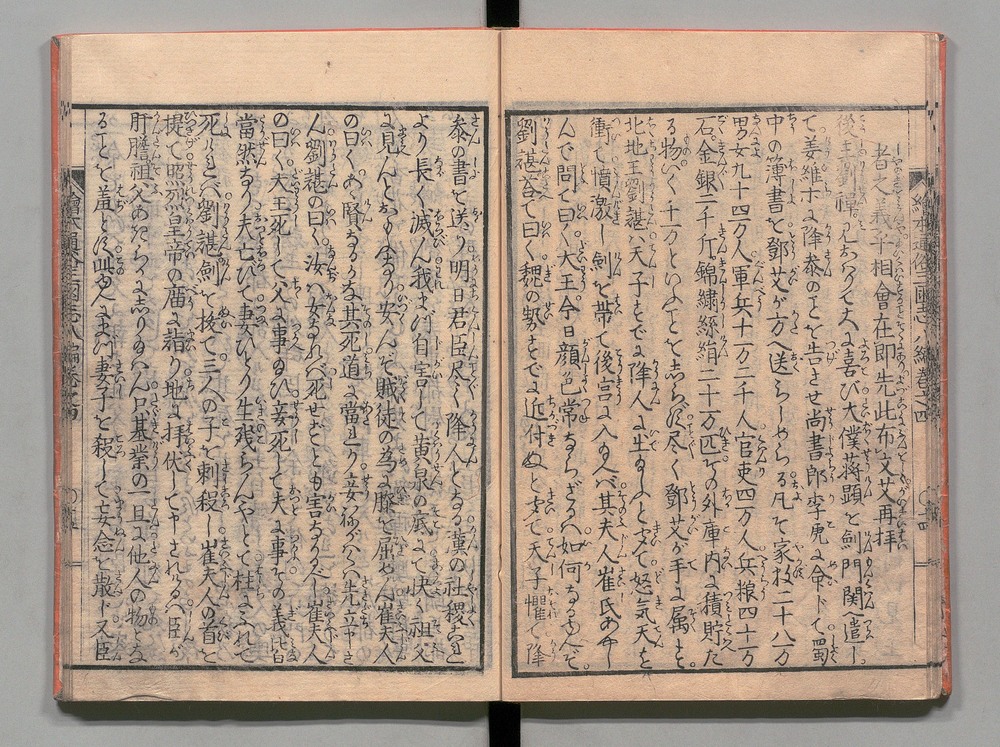 者之義予相會在即先此布文艾再拜
後主劉禪見おハつて大に喜び大僕蒋顕を劔門関に遣し
て姜維ホに降参のことを告させ尚書郎李虎に命下て蜀
中の簿書を鄧艾が方へ送らしめらる凡そ家数二十八万
男女九十四万人軍兵十万二千人官吏四万人兵粮四十万
石金銀二千斤錦繍絲絹二十万匹その外庫内に積貯た
る物いく千万といふことをしらず尽く鄧艾が手に属す
北地王劉諶ハ天子すでに降人に出ると聞て怒気天を
衝て憤激し劔を帯て後宮に入るべ其夫人崔氏あやし
んで問て曰く大王今日顔色常ならざるハ如何なるゆへぞ
劉諶荅て曰く魏の勢すでに近付ぬと聞て天子懼て降
参の書を送り明日君臣尽く降人となる漢の社稷ここ
より長く滅ん我まづ自害して黄泉の底にて快く祖父
に見んとおもふなり安んぞ賊徒の為に膝を屈せん崔夫人
の曰くあゝ賢なるかな其死道に當れり妾ねがハく先立申さ
ん劉諶の曰く汝ハ女なれべ死せずとも害なかるべし崔夫人
の曰く大王死して父に事るひ妾死して夫に事その義皆
當然なり夫亡びて妻ひとり生残らんやとて柱にふれて
死しけれべ劉諶劔を抜て三人の子を刺殺し崔夫人の首を
提て照烈皇帝の廟に詣り地に拝伏して申されるハ臣が
肝膽祖父あきらかにしりたまハん只基業の一旦に他人の物とな
ることを羞とす此ゆへにまづ妻子を殺して妄念を散下又臣